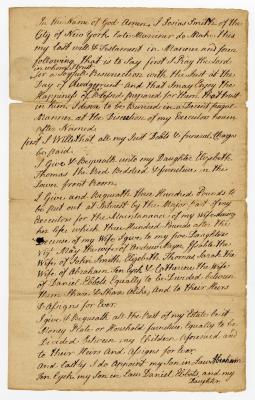 In the Name of God Amen, I Josias Smith of the
City of New York late Mariner do Make this
my Last will & Testament in Manner and form
following, that is to say first I Pray the Lord
in whom I trust
for a Joyfull Resurrection with the Just at the
Day of Judgement and that I may Enjoy the
Happiness of Blessed prepared for them that trust
in him, I desire to be Buried in a Decent frugal
Manner at the Discretion of my Executors herein
after Named.
first I Will that all my Just Debts & funeral Charges
be paid.
I Give & Bequeath unto my Daughter Elizabeth
Thomas the Bed Bedsted & furniture in the
Lower front Room.
I Give and Bequeath three Hundred Pounds to
be put out at Interest by the Major Part of my
Executors for the Maintenance of my Wife during
his life which three Hundred Pounds after the
Decease of my Wife I give to my five Daughters
Viz. Mary the wife of
Wife of John Smith, Elizabeth Thomas, Sarah the
Wife of Abraham Ten Eyck & Catharine the Wife
of Daniel Ebbets Equally to be Divided between
them Share & Share Alike, and to their Heirs
& Assigns for Ever.
I give & Bequeath all the Rest of my Estate be it
Money Plate or Household furniture Equally to be
Divided Between my Children aforesaid and
to their Heirs And Assigns for Ever.
And Lastly I do Appoint my Son in Law Abraham
Ten Eyck, my Son in Law Daniel Ebbets, and my
Daughter